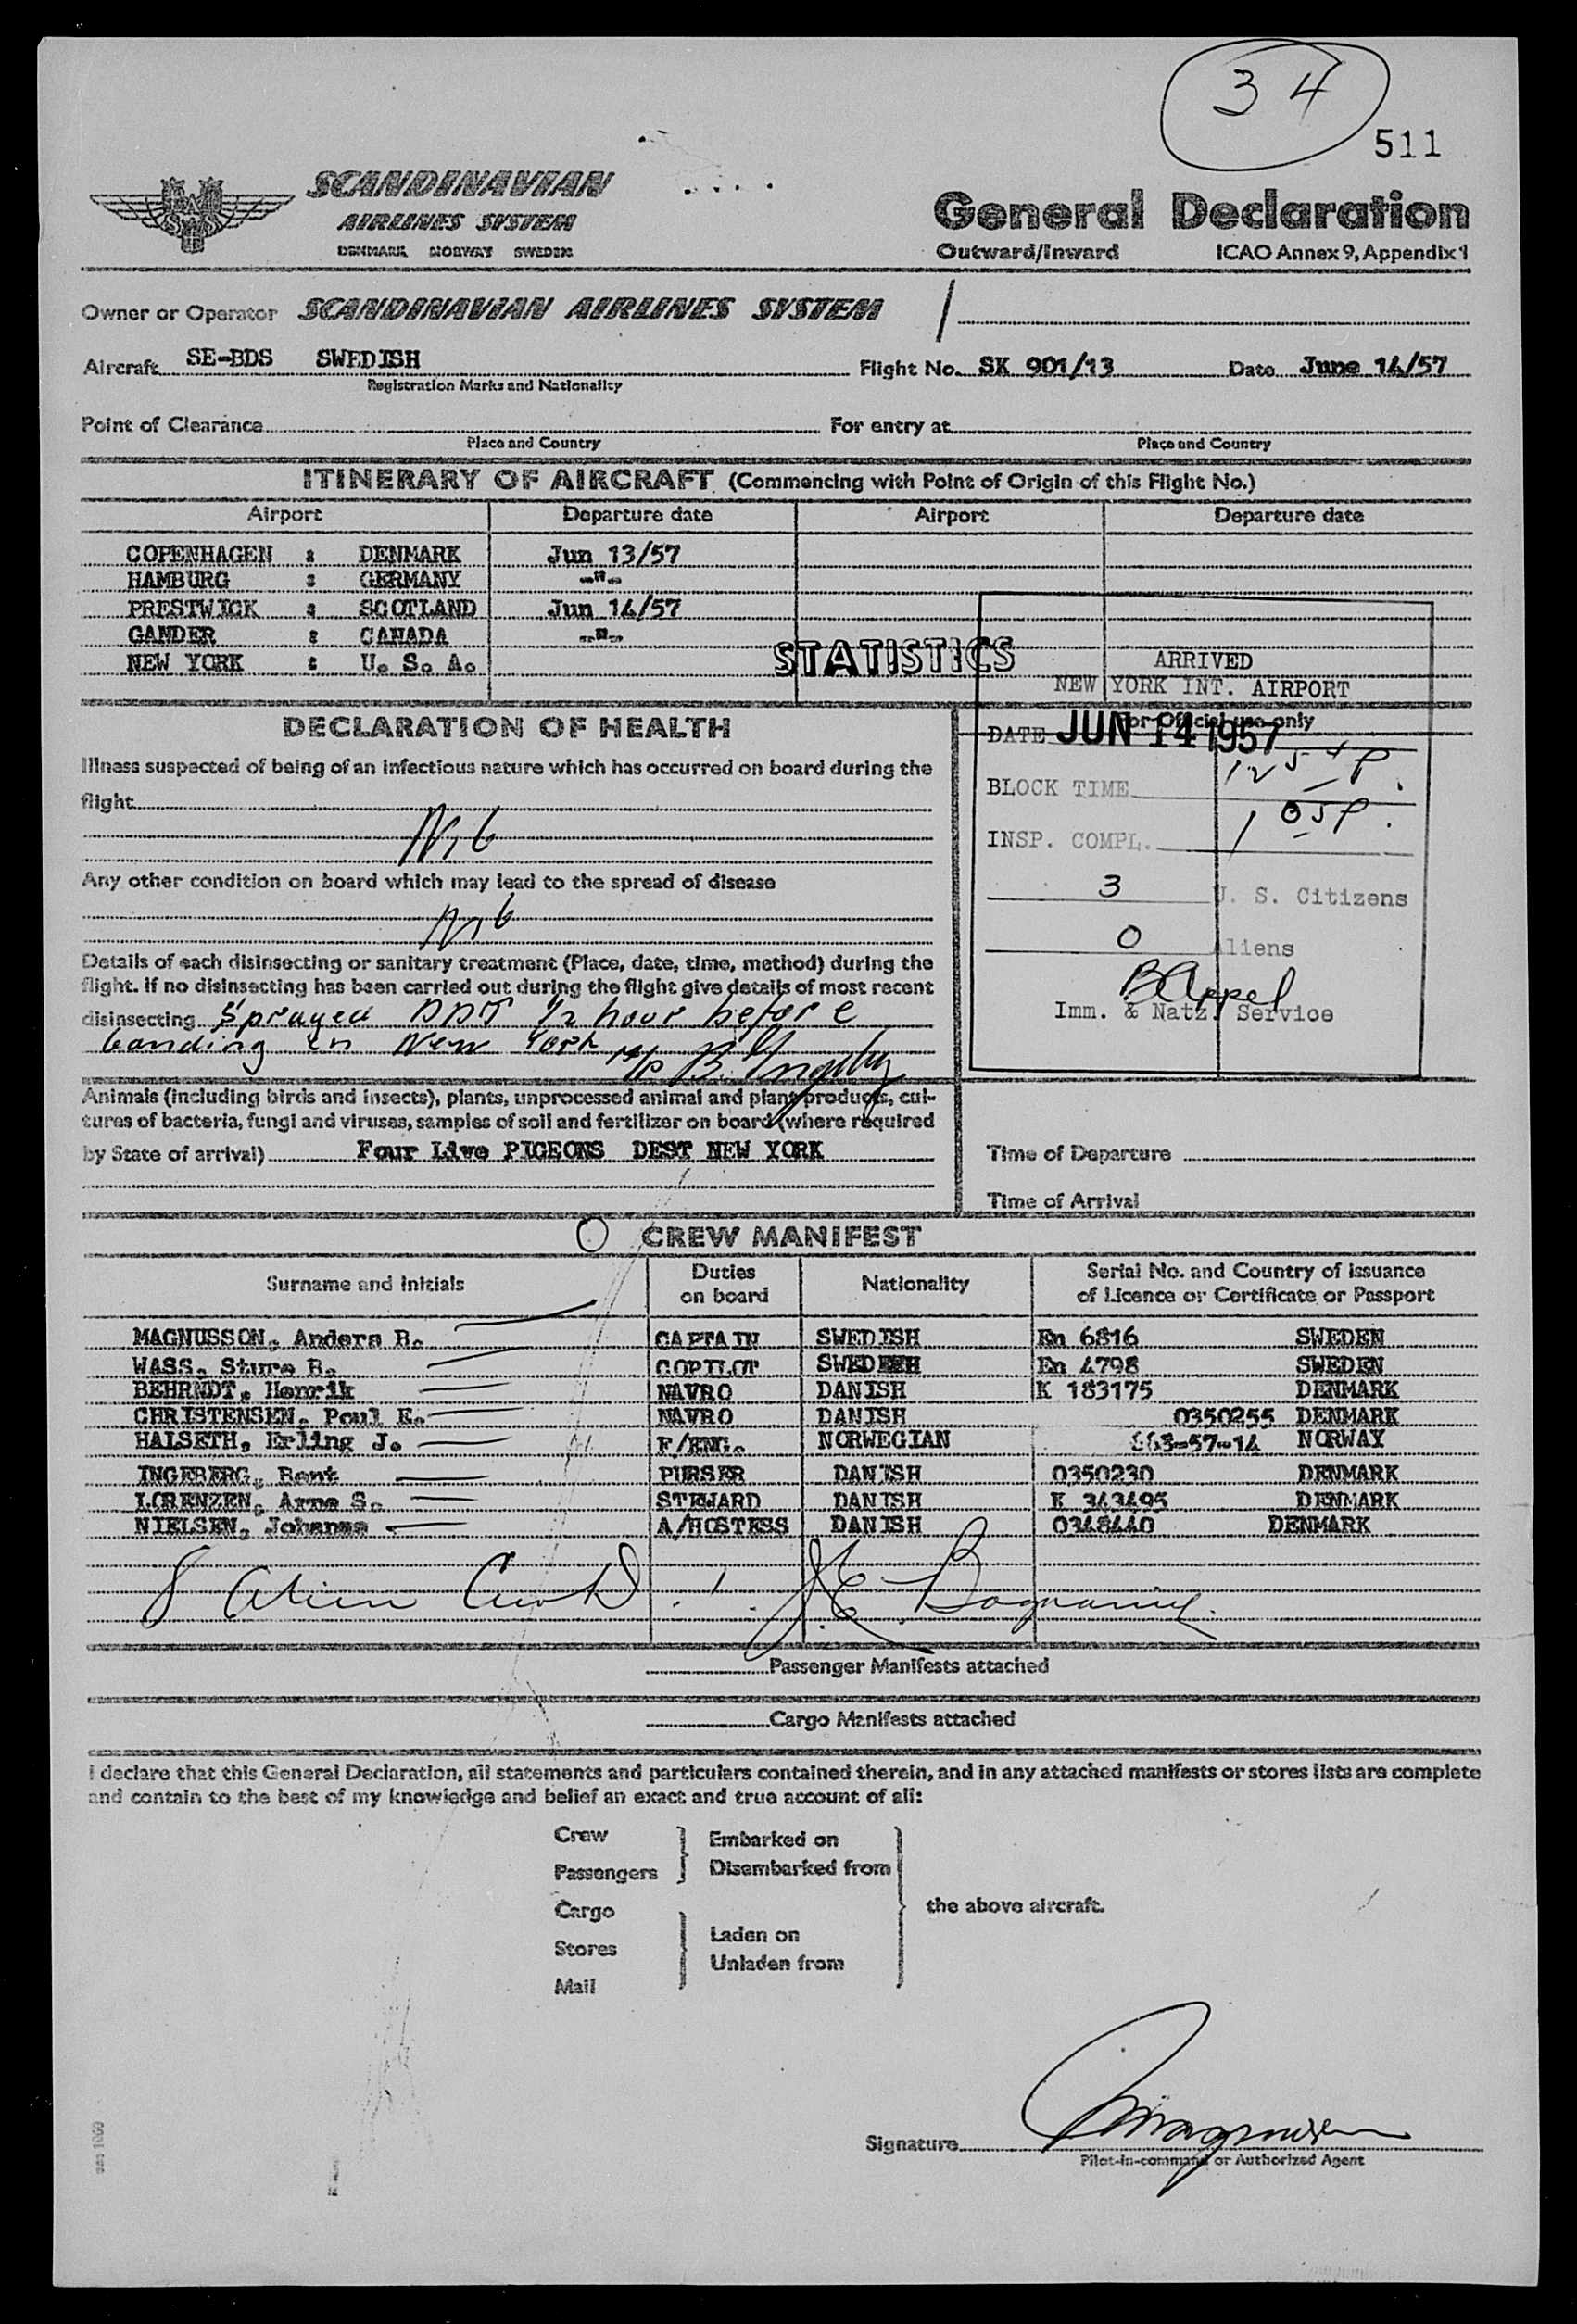 34
511
SCANDINAVIAN
AIRLINES SYSTEM
DENMARK NORWAY SWEDEN
General Declaration
Outward/Inward ICAO Annex 9, Appendix 1
Owner or Operator SCANDINAVIAN AIRLINES SYSTEM
Aircraft SE-BDS SWEDISH Flight No. SK 901/13 Date June 14/57
Registration Marks and Nationality
Point of Clearance For entry at
Place and Country Place and Country
ITINERARY OF AIRCRAFT (Commencing with Point of Origin of this Flight No.)
Airport Departure date Airport Departure date
COPENHAGEN : DENMARK Jun 13/57
HAMBURG : GERMANY -"-
PRESTWICK : SCOTLAND Jun 14/57
GANDER : CANADA -"-
NEW YORK : U. S. A.
STATISTICS
ARRIVED
NEW YORK INT. AIRPORT
For Official use only
DATE JUN 14 1957
BLOCK TIME 12 54 P.
INSP. COMPL. 1 05 P.
3 U. S. Citizens
0 Aliens
B Appel
Imm. & Natz. Service
DECLARATION OF HEALTH
Illness suspected of being of an infectious nature which has occurred on board during the
flight
Nil
Any other condition on board which may lead to the spread of disease
Nil
Details of each disinsecting or sanitary treatment (Place, date, time, method) during the
flight. If no disinsecting has been carried out during the flight give details of most recent
disinsecting Sprayed DDT 1/2 hour before
landing in New York
Animals (including birds and insects), plants, unprocessed animal and plant products, cul-
tures of bacteria, fungi and viruses, samples of soil and fertilizer on board (where required
by State of arrival) Four Live PIGEONS DEST NEW YORK
Time of Departure
Time of Arrival
O CREW MANIFEST
Surname and Initials Duties on board Nationality Serial No. and Country of issuance of Licence or Certificate or Passport
MAGNUSSON, Anders B. CAPTAIN SWEDISH En 6816 SWEDEN
WASS, Sture B. COPILOT SWEDISH En 4798 SWEDEN
BEHRNDT, Henrik NAVRO DANISH K 183175 DENMARK
CHRISTENSEN, Poul E. NAVRO DANISH 0350255 DENMARK
HALSETH, Erling J. F/ENG. NORWEGIAN 668-57-14 NORWAY
INGEBERG, Bent PURSER DANISH 0350230 DENMARK
LORENZEN, Arne S. STEWARD DANISH K 343495 DENMARK
NIELSEN, Johanne A/HOSTESS DANISH 0348440 DENMARK
8 Alien
Passenger Manifests attached
Cargo Manifests attached
I declare that this General Declaration, all statements and particulars contained therein, and in any attached manifests or stores lists are complete
and contain to the best of my knowledge and belief an exact and true account of all:
Crew Embarked on
Passengers Disembarked from
Cargo the above aircraft.
Stores Laden on
Mail Unladen from
Signature
Pilot-in-command or Authorized Agent